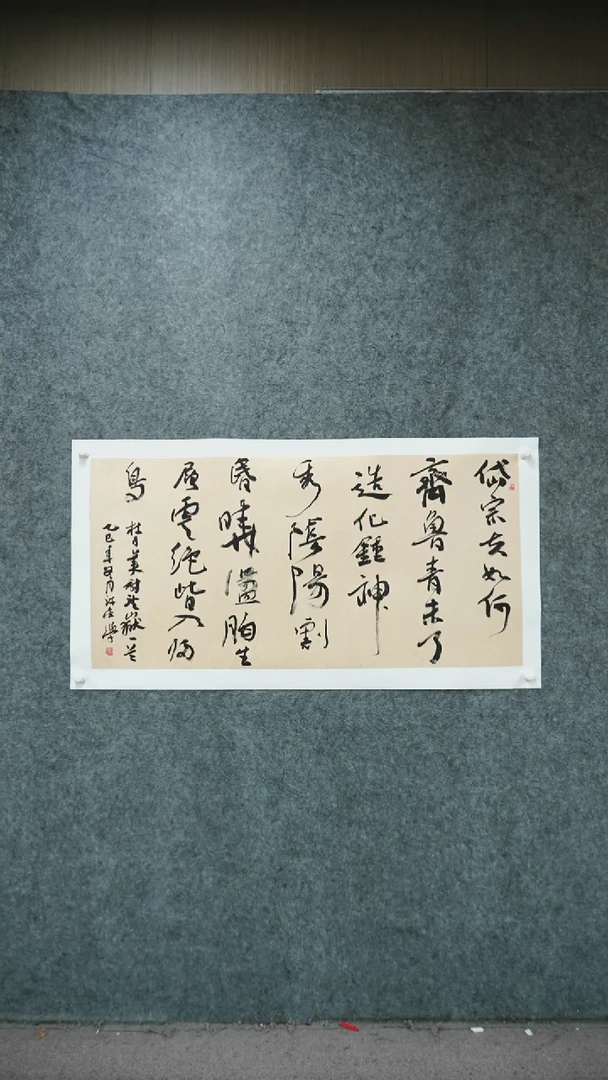 岱宗夫如何
齊魯青未了
造化鍾神
秀陰陽割
昏曉盪胸生
層雲絕眥入歸
鳥
望嶽一首
乙巳年 月